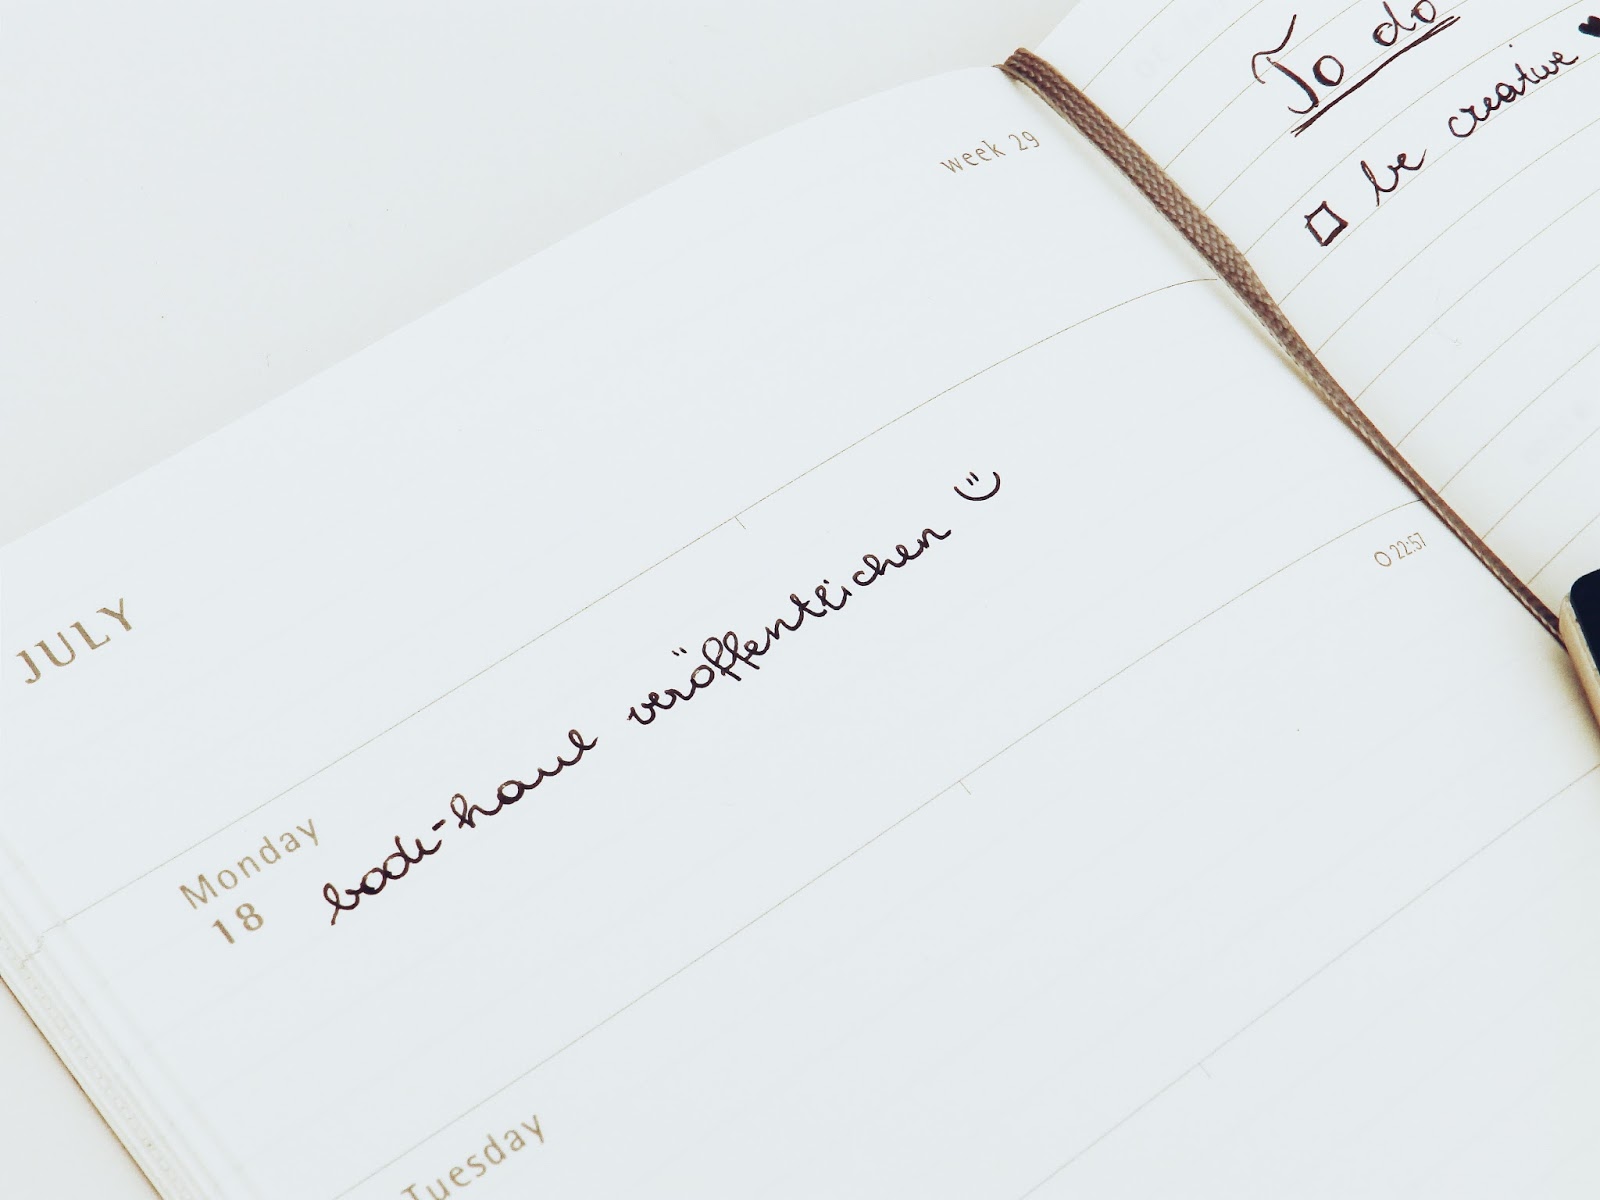 week 29
JULY
Monday
18
book-haul veröffentlichen
22:57
Tuesday
To do
be creative